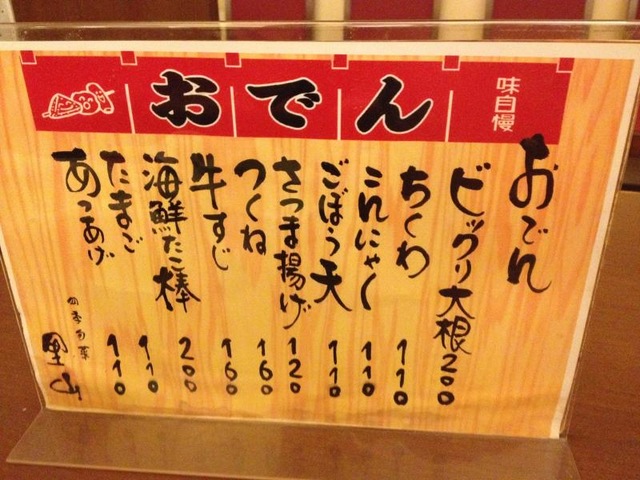 おでん
味自慢
おでん
ビックリ大根 200
ちくわ 110
こんにゃく 110
ごぼう天 110
さつま揚げ 120
つくね 160
牛すじ 160
海鮮たこ棒 200
たまご 110
あつあげ 110
四季旬菜
里山